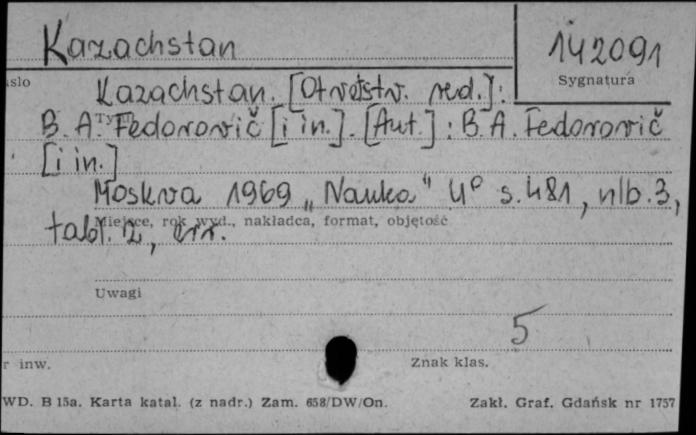 Kazachstan 142091
asło Sygnatura
Kazachstan. [Otvetstv. red.]:
B. A. Fedorovič [i in.]. [Aut.]: B. A. Fedorovič
[i in.]
Moskva 1969 „Nauka" 4° s. 481, nlb. 3,
Miejsce, rok wyd., nakładca, format, objętość
tabl. 2, err.
Uwagi
5
r inw. Znak klas.
WD. B 15a. Karta katal. (z nadr.) Zam. 658/DW/On. Zakł. Graf. Gdańsk nr 1757